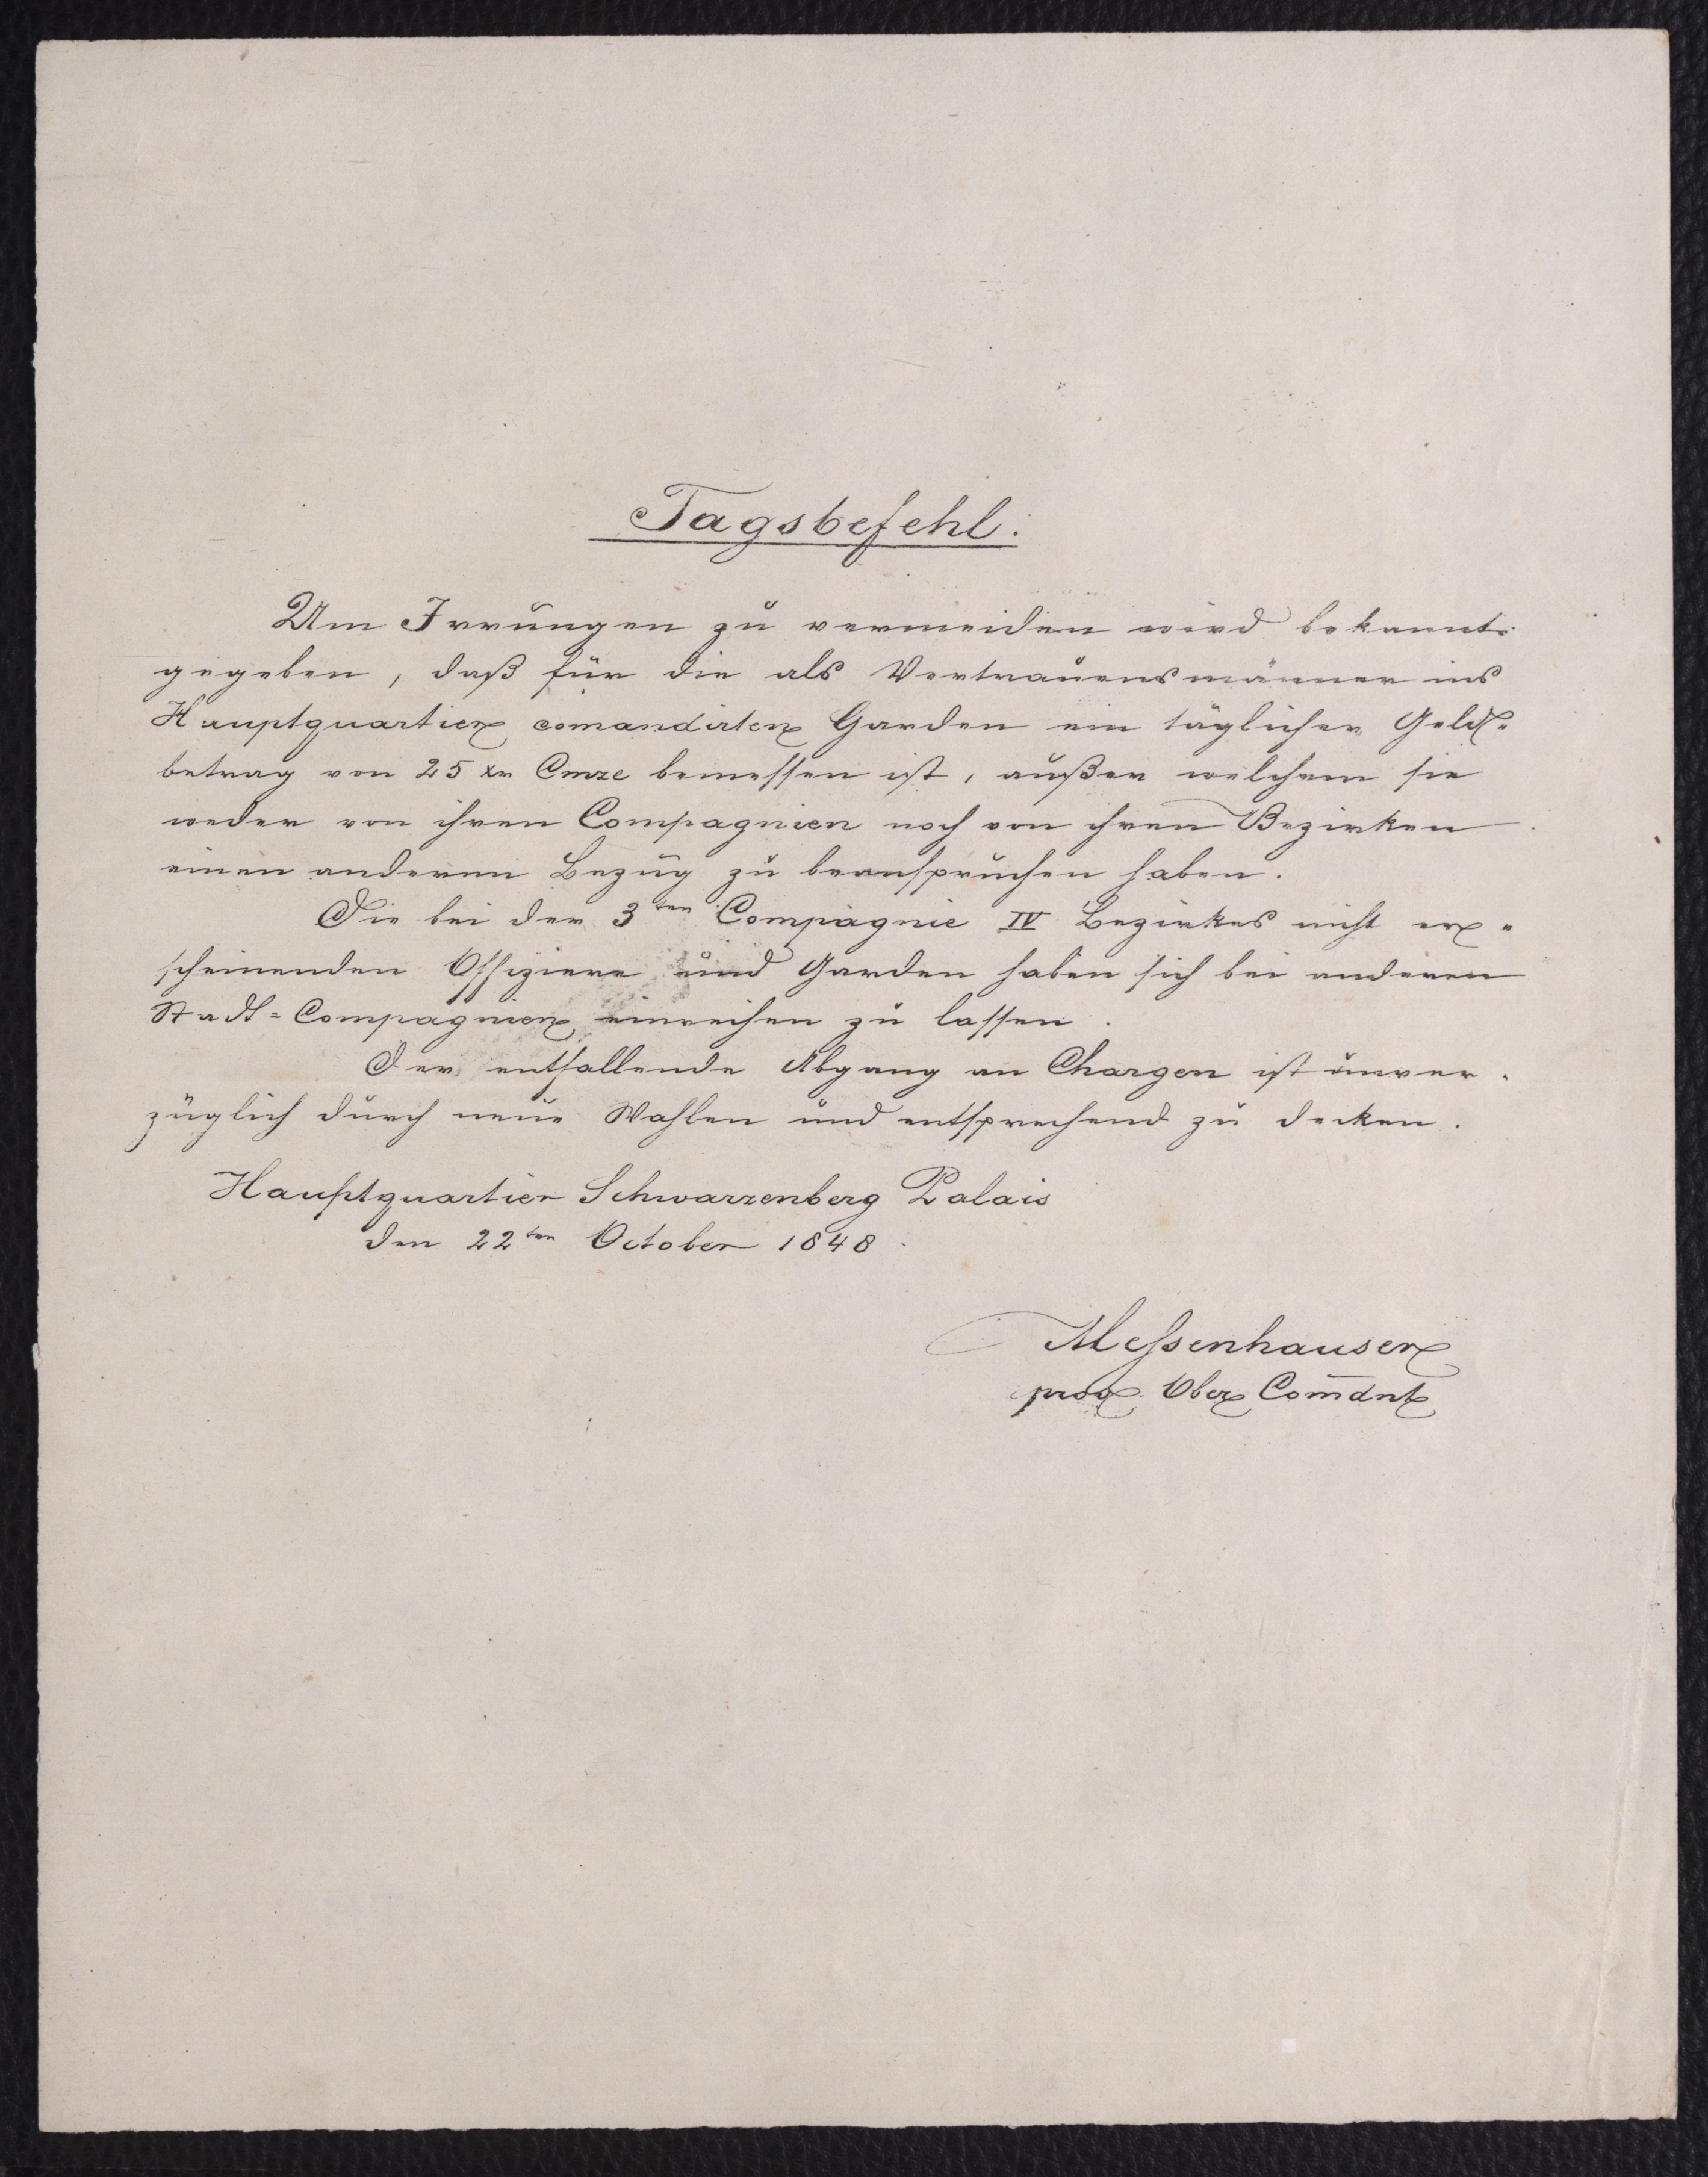 Tagsbefehl.
Um Irrungen zu vermeiden wird bekannt-
gegeben, daß für die als Vertrauensmänner ins
Hauptquartier comandirten Garden ein täglicher Geld-
betrag von 25 xr Cmze bemessen ist, außer welchem sie
weder von ihren Compagnien noch von ihren Bezirken
einen anderen Bezug zu beanspruchen haben.
Die bei der 3ten Compagnie IV Bezirkes nicht er-
scheinenden Offiziere und Garden haben sich bei anderen
Stadt-Compagnien einreihen zu lassen.
Der entfallende Abgang an Chargen ist unver-
züglich durch neue Wahlen und entsprechend zu decken.
Hauptquartier Schwarzenberg Palais
den 22ten October 1848.
Messenhauser
prov. Ober Com̅dnt